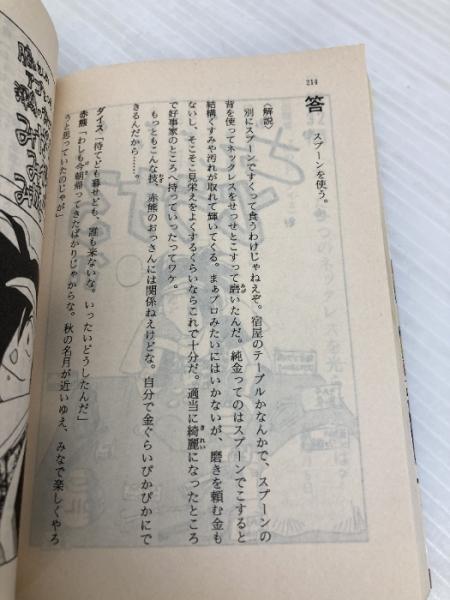 214
答
スプーンを使う。
〈解説〉
別にスプーンですくって食うわけじゃねえぞ。宿屋のテーブルかなんかで、スプーンの
背を使ってネックレスをせっせとこすって磨いたんだ。純金ってのはスプーンでこすると
結構くすみや汚れが取れて輝いてくる。まぁプロみたいにはいかないが、磨きを頼む金も
ないし、そこそこ見栄えをよくするくらいならこれで十分だ。適当に綺麗になったところ
で好事家のところへ持っていったってワケ。
もっともこんな技、赤熊のおっさんには関係ねえけどな。自分で金ぐらいぴかぴかにで
きるんだから……。
ダイス「待てども暮せども、誰も来ないな。いったいどうしたんだ」
赤熊「わしも今朝帰ってきたばかりじゃからな。秋の名月が近いゆえ、みなで楽しくやろ
うと思っていたのじゃが」